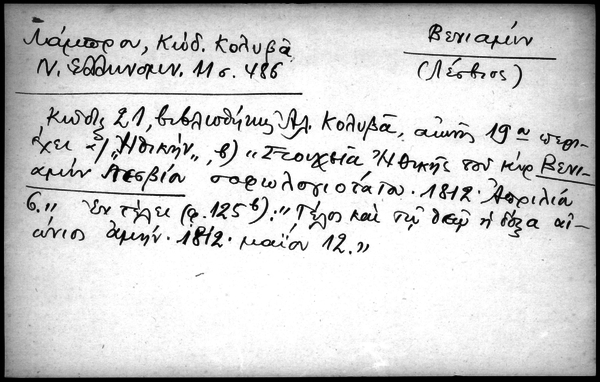 Λάμπρου, Κώδ. Κολυβᾶ
Ν. Ἑλληνομν. 11 σ. 486
Βενιαμίν
(Λέσβιος)
Κώδιξ 21, βιβλιοθήκης Ἀλ. Κολυβᾶ, αἰῶνος 19ου περι-
έχει α) "Ἠθικήν", β) "Στοιχεῖα Ἠθικῆς τοῦ κὺρ Βενι-
αμὶν Λεσβίου σοφωλογιοτάτου. 1812. Ἀπριλίου
6." Ἐν τέλει (φ. 125β): "Τέλος καὶ τῷ θεῷ ἡ δόξα αἰ-
ώνιος ἀμήν. 1812. μαΐου 12."